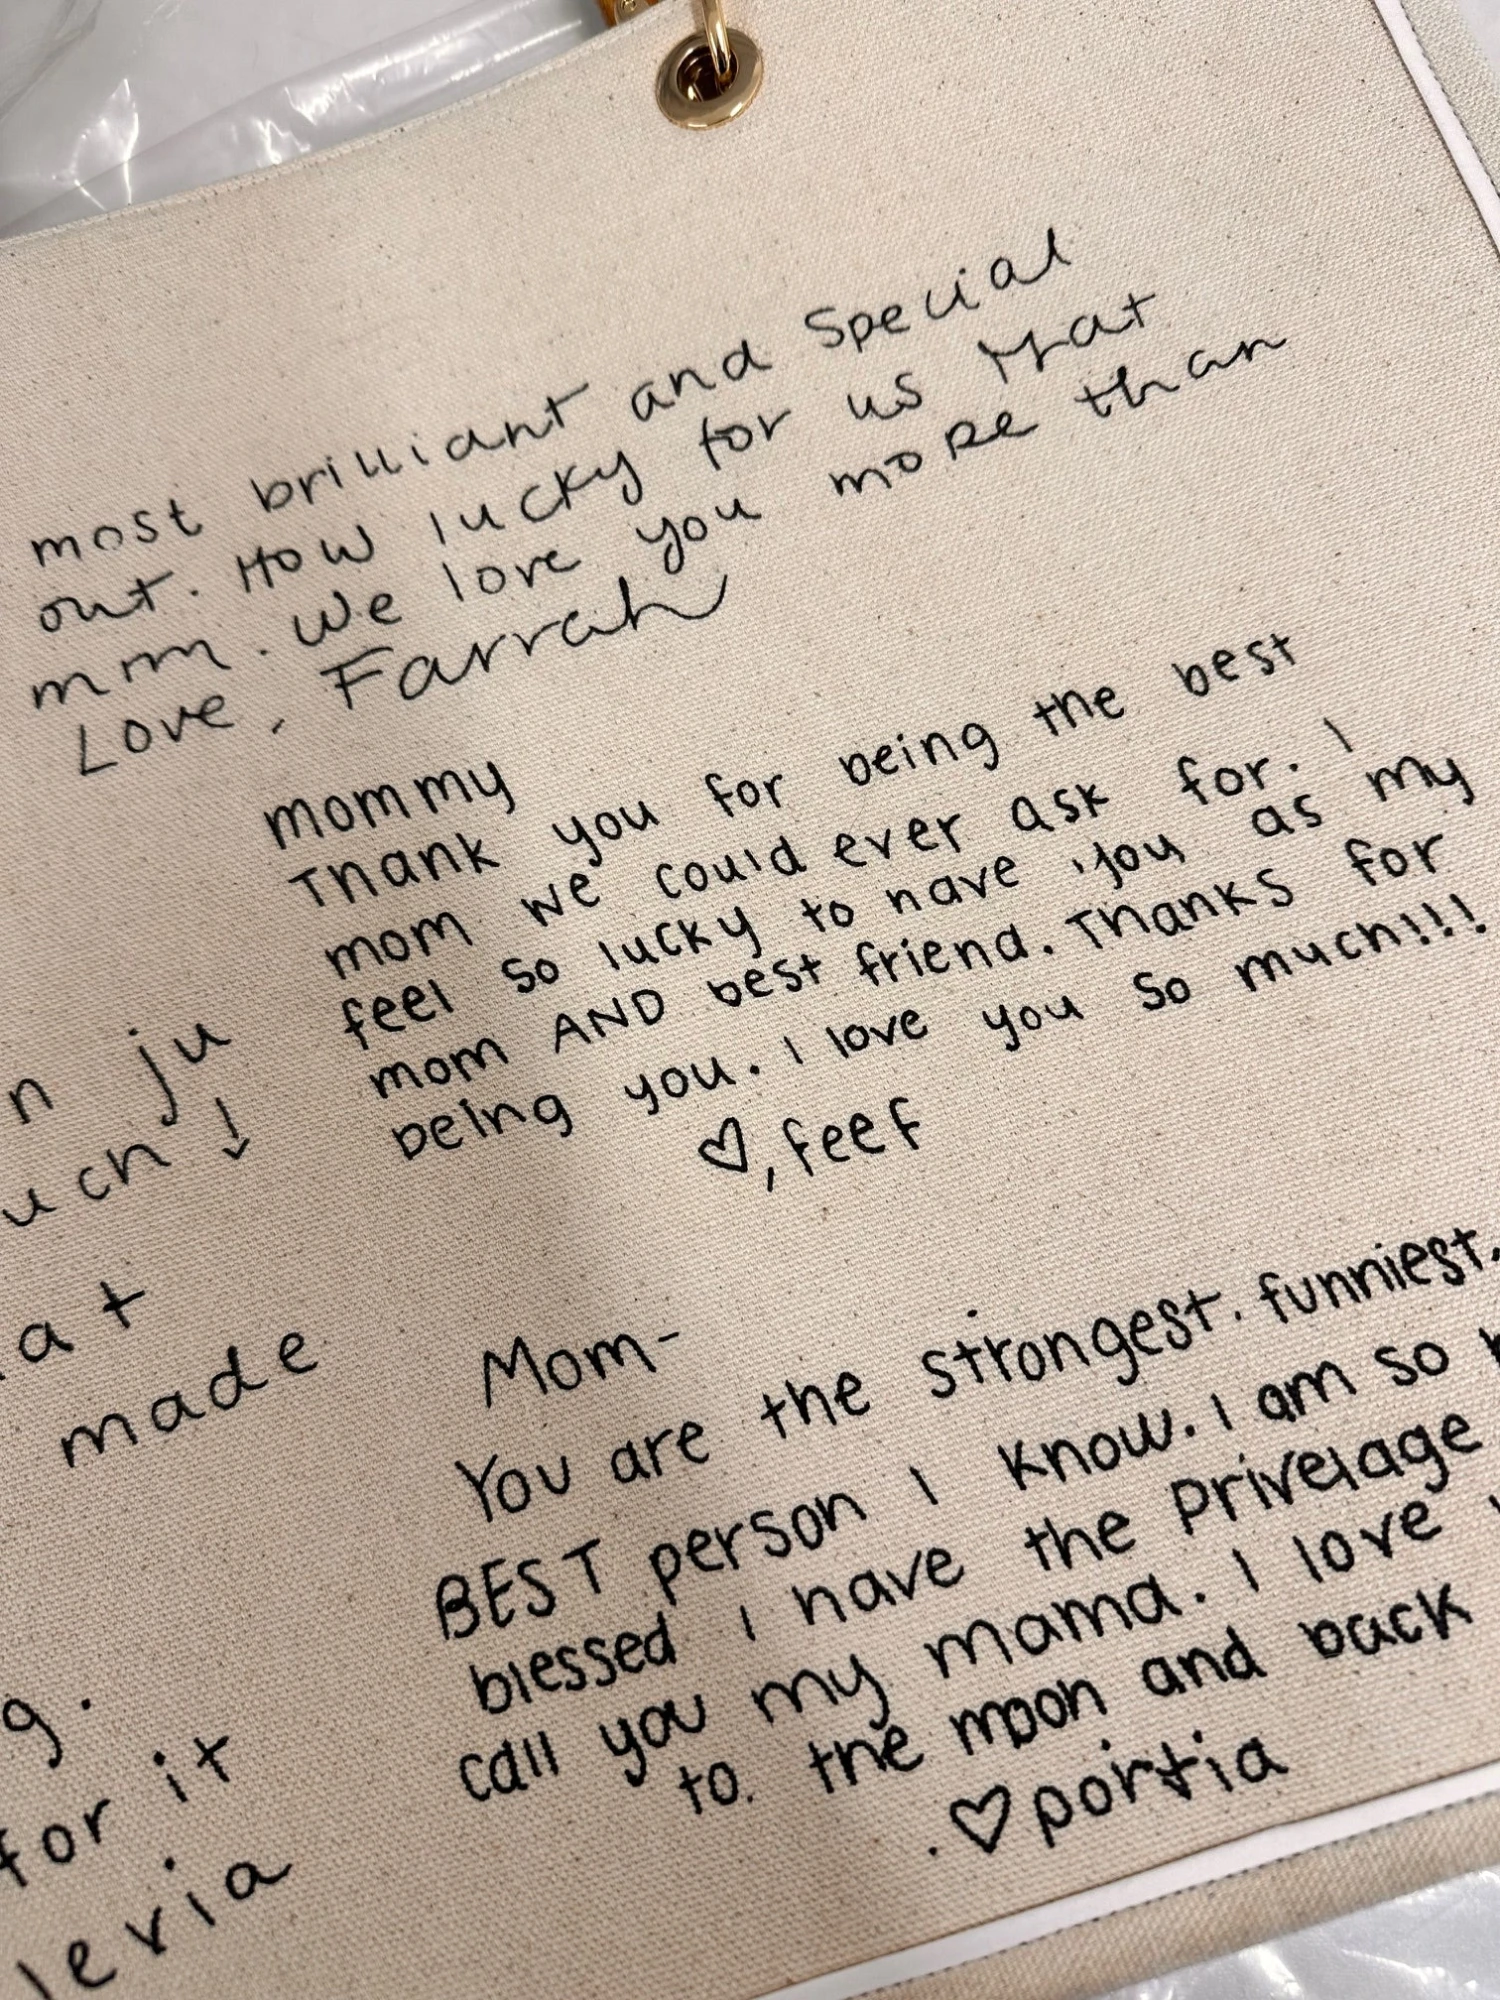 most brilliant and Special
out. How lucky for us that
mm. We love you more than
Love, Farrah
mommy
Thank you for being the best
mom we could ever ask for. I
feel so lucky to have you as my
mom AND best friend. Thanks for
being you. I love you so much!!!
♡, feef
n ju
uch ↓
at
made
g.
for it
leria
Mom-
You are the strongest. funniest.
BEST person I know. I am so
blessed I have the Privelage
call you my mama. I love
to. the moon and back
. ♡ portia